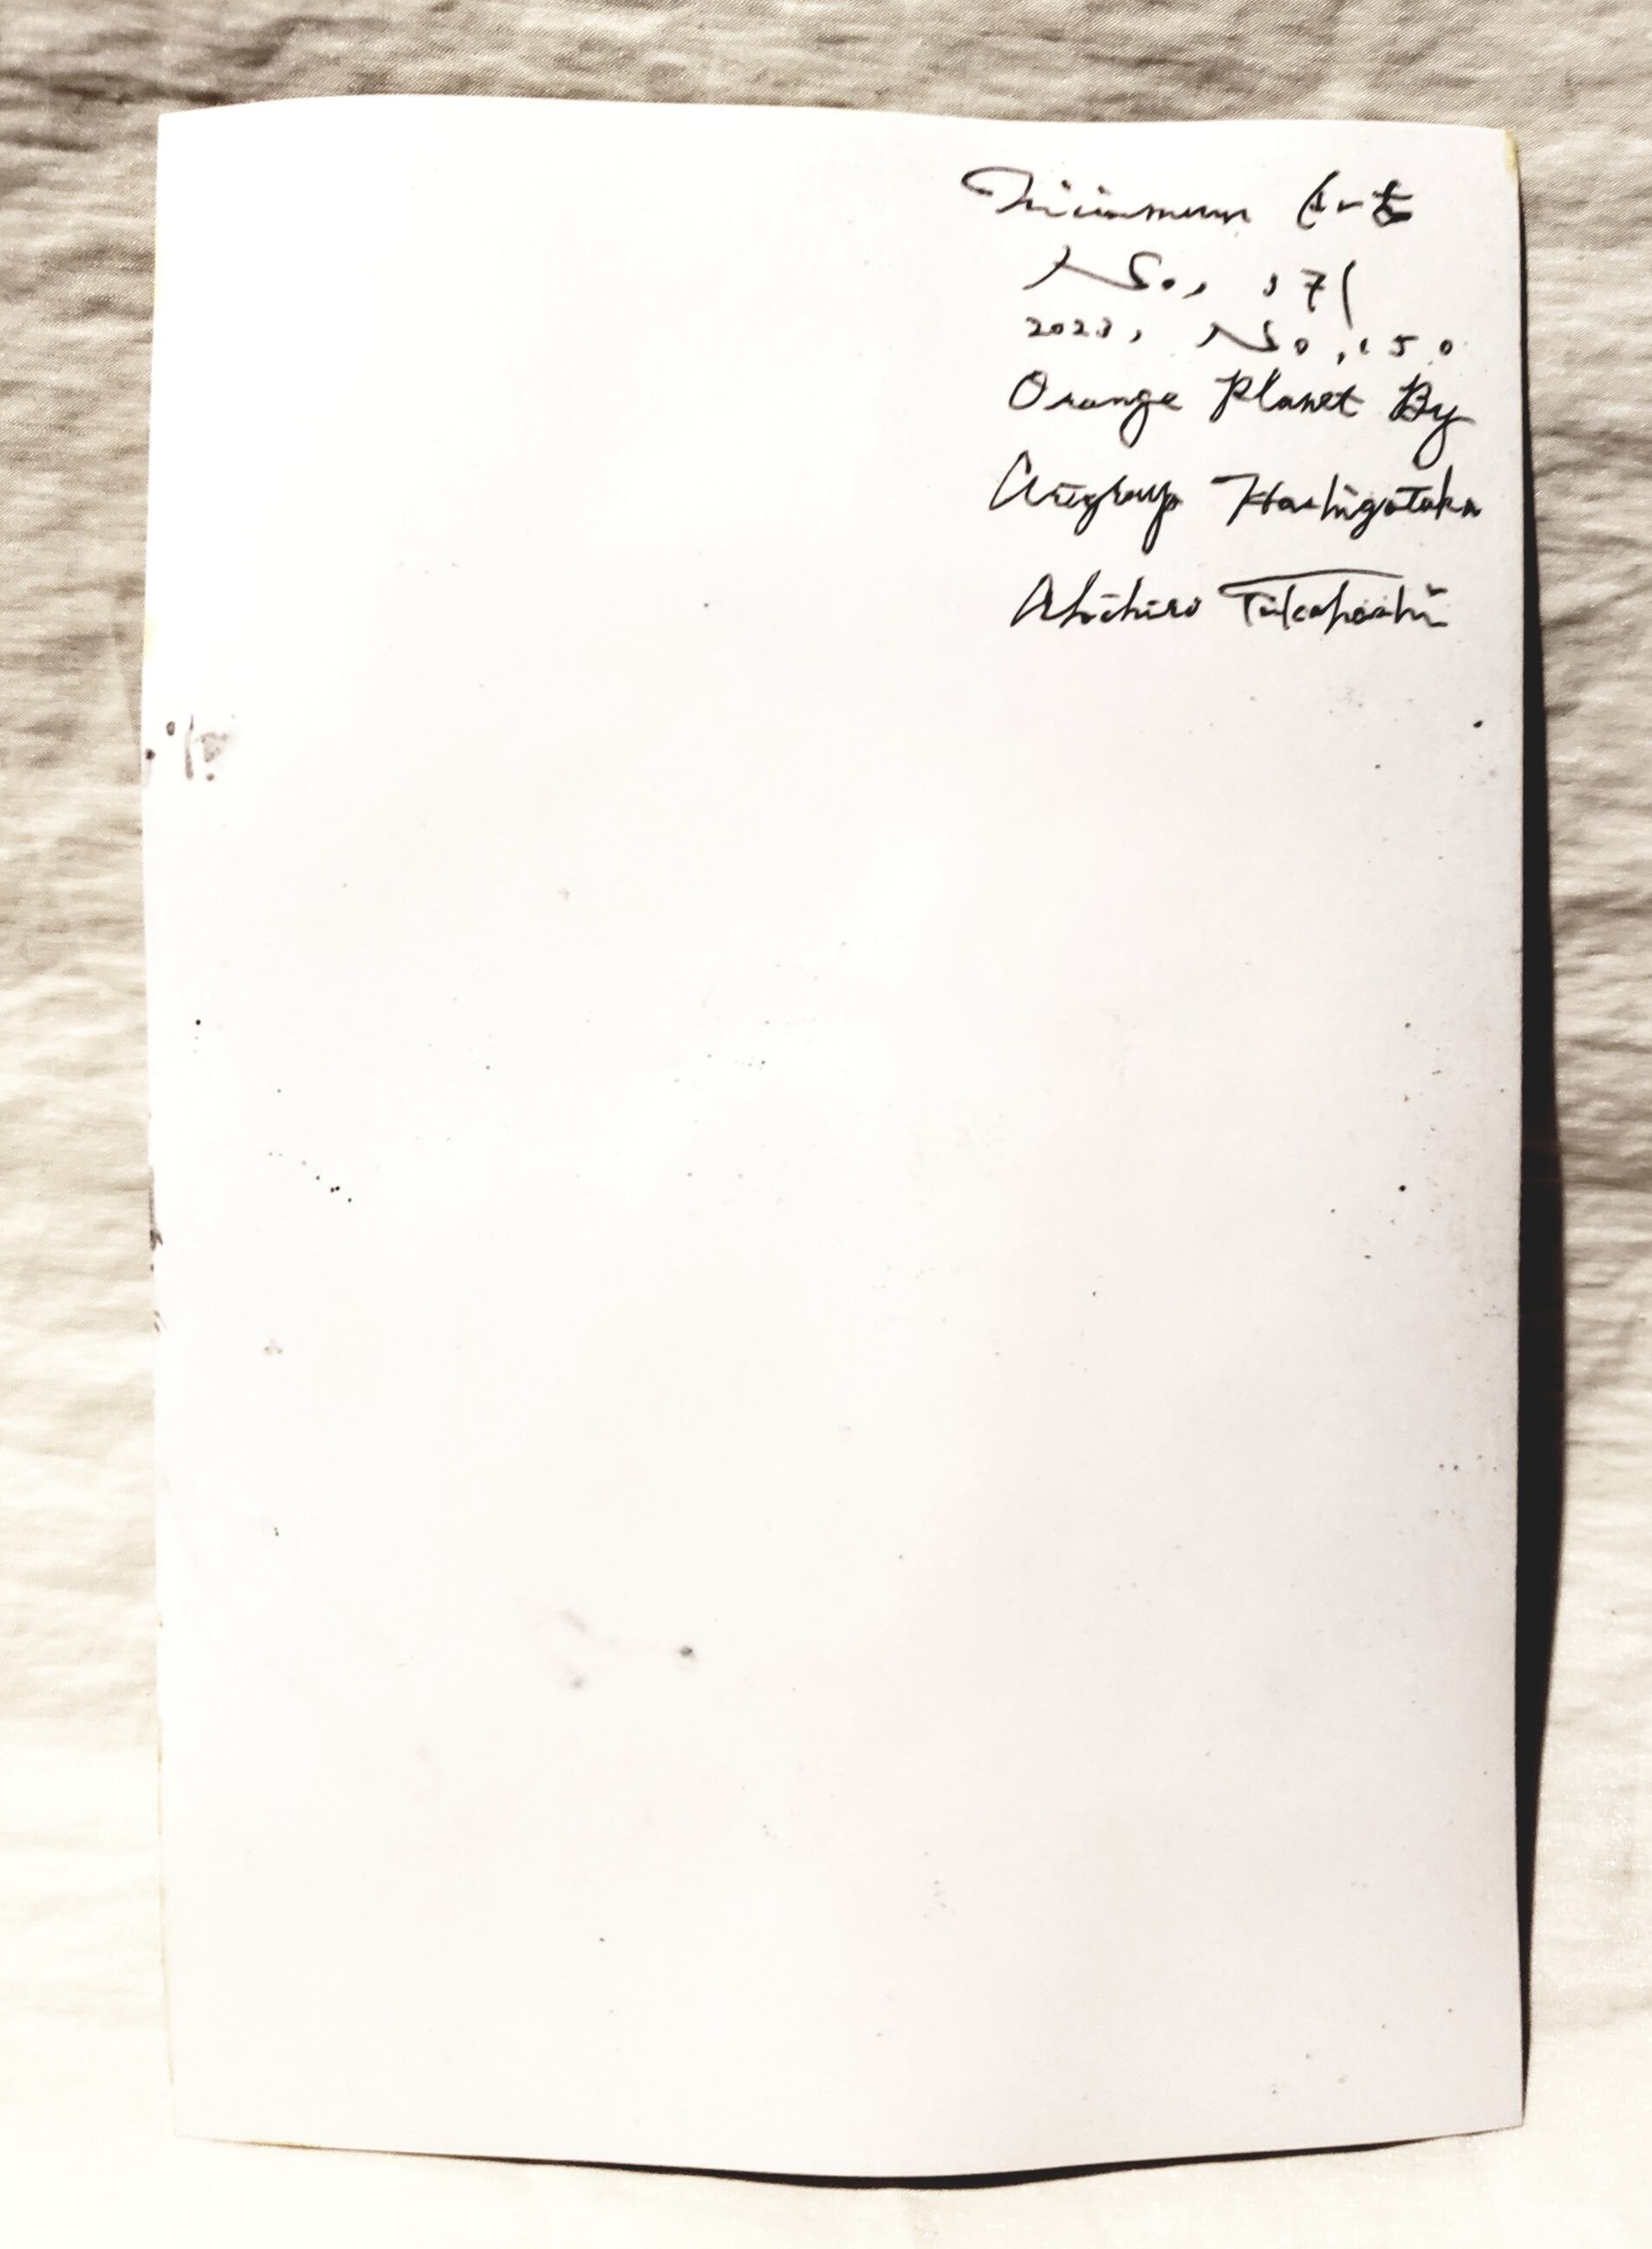 Minimum Art
No. 171
2023, No. 150
Orange Planet By
Artgroup Hashigotaka
Akihiro Takahashi